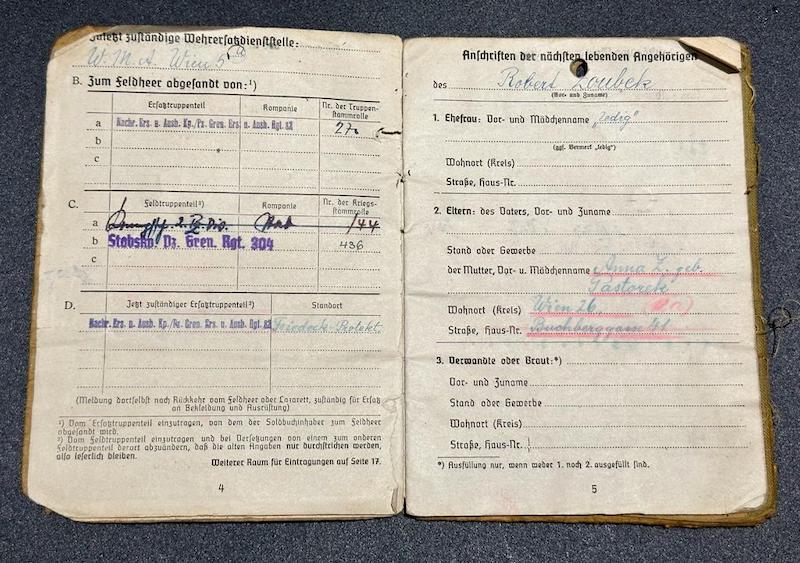 Zuletzt zuständige Wehrersatzdienststelle:
W. M. A. Wien 5
B. Zum Feldheer abgesandt von:¹)
Ersatztruppenteil
Kompanie
Nr. der Truppen-
stammrolle
a
Nachr. Ers. u. Ausb. Kp./Pz. Gren. Ers. u. Ausb. Rgt. 82
27
b
c
C.
Feldtruppenteil²)
Kompanie
Nr. der Kriegs-
stammrolle
a
Stab
/44
b
Stabskp. Pz. Gren. Rgt. 304
436
c
D.
Jetzt zuständiger Ersatztruppenteil²)
Standort
Nachr. Ers. u. Ausb. Kp./Pz. Gren. Ers. u. Ausb. Rgt. 82
(Meldung dortselbst nach Rückkehr vom Feldheer oder Lazarett, zuständig für Ersatz
an Bekleidung und Ausrüstung)
¹) Vom Ersatztruppenteil einzutragen, von dem der Soldbuchinhaber zum Feldheer
abgesandt wird.
²) Vom Feldtruppenteil einzutragen und bei Versetzungen von einem zum anderen
Feldtruppenteil derart abzuändern, daß die alten Angaben nur durchstrichen werden,
also leserlich bleiben.
Weiterer Raum für Eintragungen auf Seite 17.
4
Anschriften der nächsten lebenden Angehörigen
des Robert Loubek
(Vor- und Zuname)
1. Ehefrau: Vor- und Mädchenname "ledig"
(ggf. Vermerk „ledig")
Wohnort (Kreis)
Straße, Haus-Nr.
2. Eltern: des Vaters, Vor- und Zuname
Stand oder Gewerbe
der Mutter, Vor- u. Mädchenname Anna L. geb.
Pastorek
Wohnort (Kreis) Wien 26.
Straße, Haus-Nr. Buchberggasse 41
3. Verwandte oder Braut:*)
Vor- und Zuname
Stand oder Gewerbe
Wohnort (Kreis)
Straße, Haus-Nr.
*) Ausfüllung nur, wenn weder 1. noch 2. ausgefüllt sind.
5